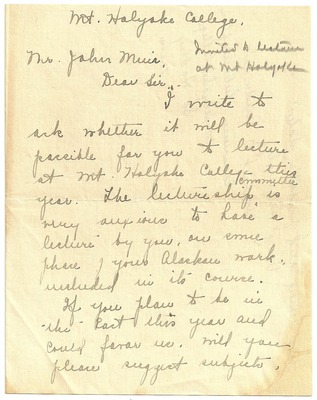 Mt. Holyoke College.
Invited to lecture
at Mt Holyoke
Mr. John Muir,
Dear Sir:-
I write to
ask whether it will be
possible for you to lecture
at Mt. Holyoke College this
year. The lectureship committee is
very anxious to have a
lecture by you, on some
phase of your Alaskan work,
included in its course.
If you plan to be in
the East this year and
could favor us, will you
please suggest subjects,